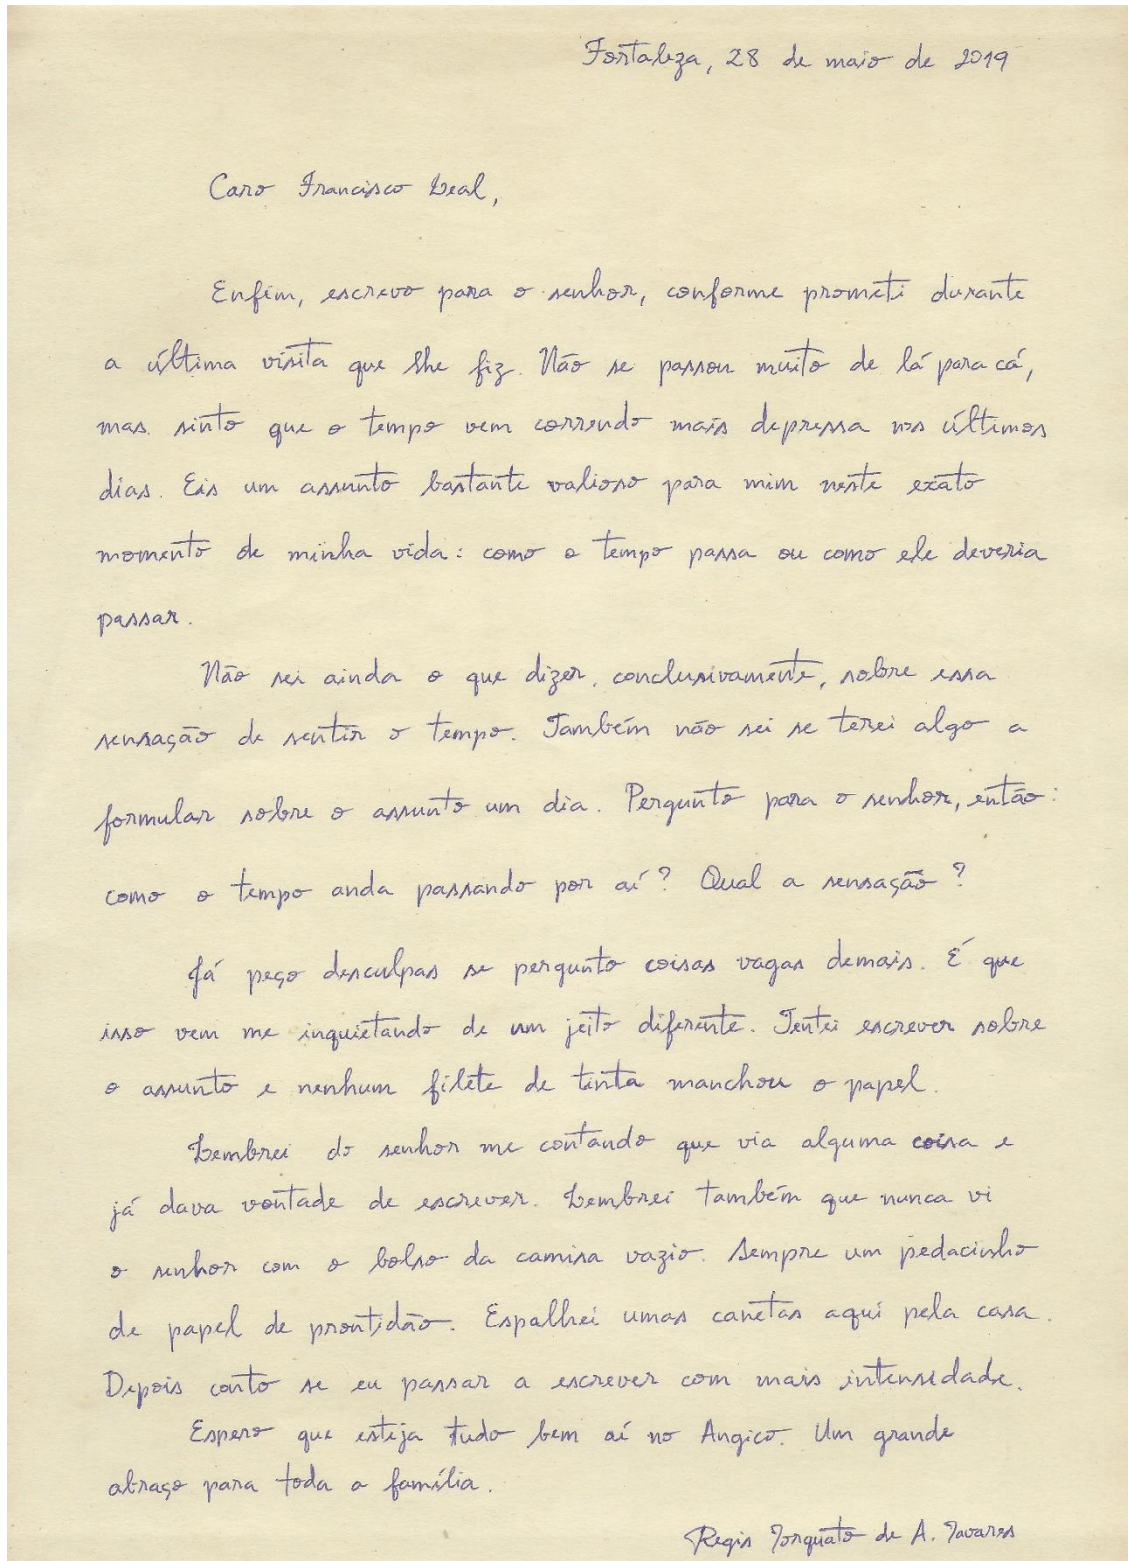 Fortaleza, 28 de maio de 2019
Caro Francisco Leal,
Enfim, escrevo para o senhor, conforme prometi durante
a última visita que lhe fiz. Não se passou muito de lá para cá,
mas sinto que o tempo vem correndo mais depressa nos últimos
dias. Eis um assunto bastante valioso para mim neste exato
momento de minha vida: como o tempo passa ou como ele deveria
passar.
Não sei ainda o que dizer, conclusivamente, sobre essa
sensação de sentir o tempo. Também não sei se terei algo a
formular sobre o assunto um dia. Pergunto para o senhor, então:
como o tempo anda passando por aí? Qual a sensação?
Já peço desculpas se pergunto coisas vagas demais. É que
isso vem me inquietando de um jeito diferente. Tentei escrever sobre
o assunto e nenhum filete de tinta manchou o papel.
Lembrei do senhor me contando que via alguma coisa e
já dava vontade de escrever. Lembrei também que nunca vi
o senhor com o bolso da camisa vazio. Sempre um pedacinho
de papel de prontidão. Espalhei umas canetas aqui pela casa.
Depois conto se eu passar a escrever com mais intensidade.
Espero que esteja tudo bem aí no Angico. Um grande
abraço para toda a família.
Regis Torquato de A. Tavares